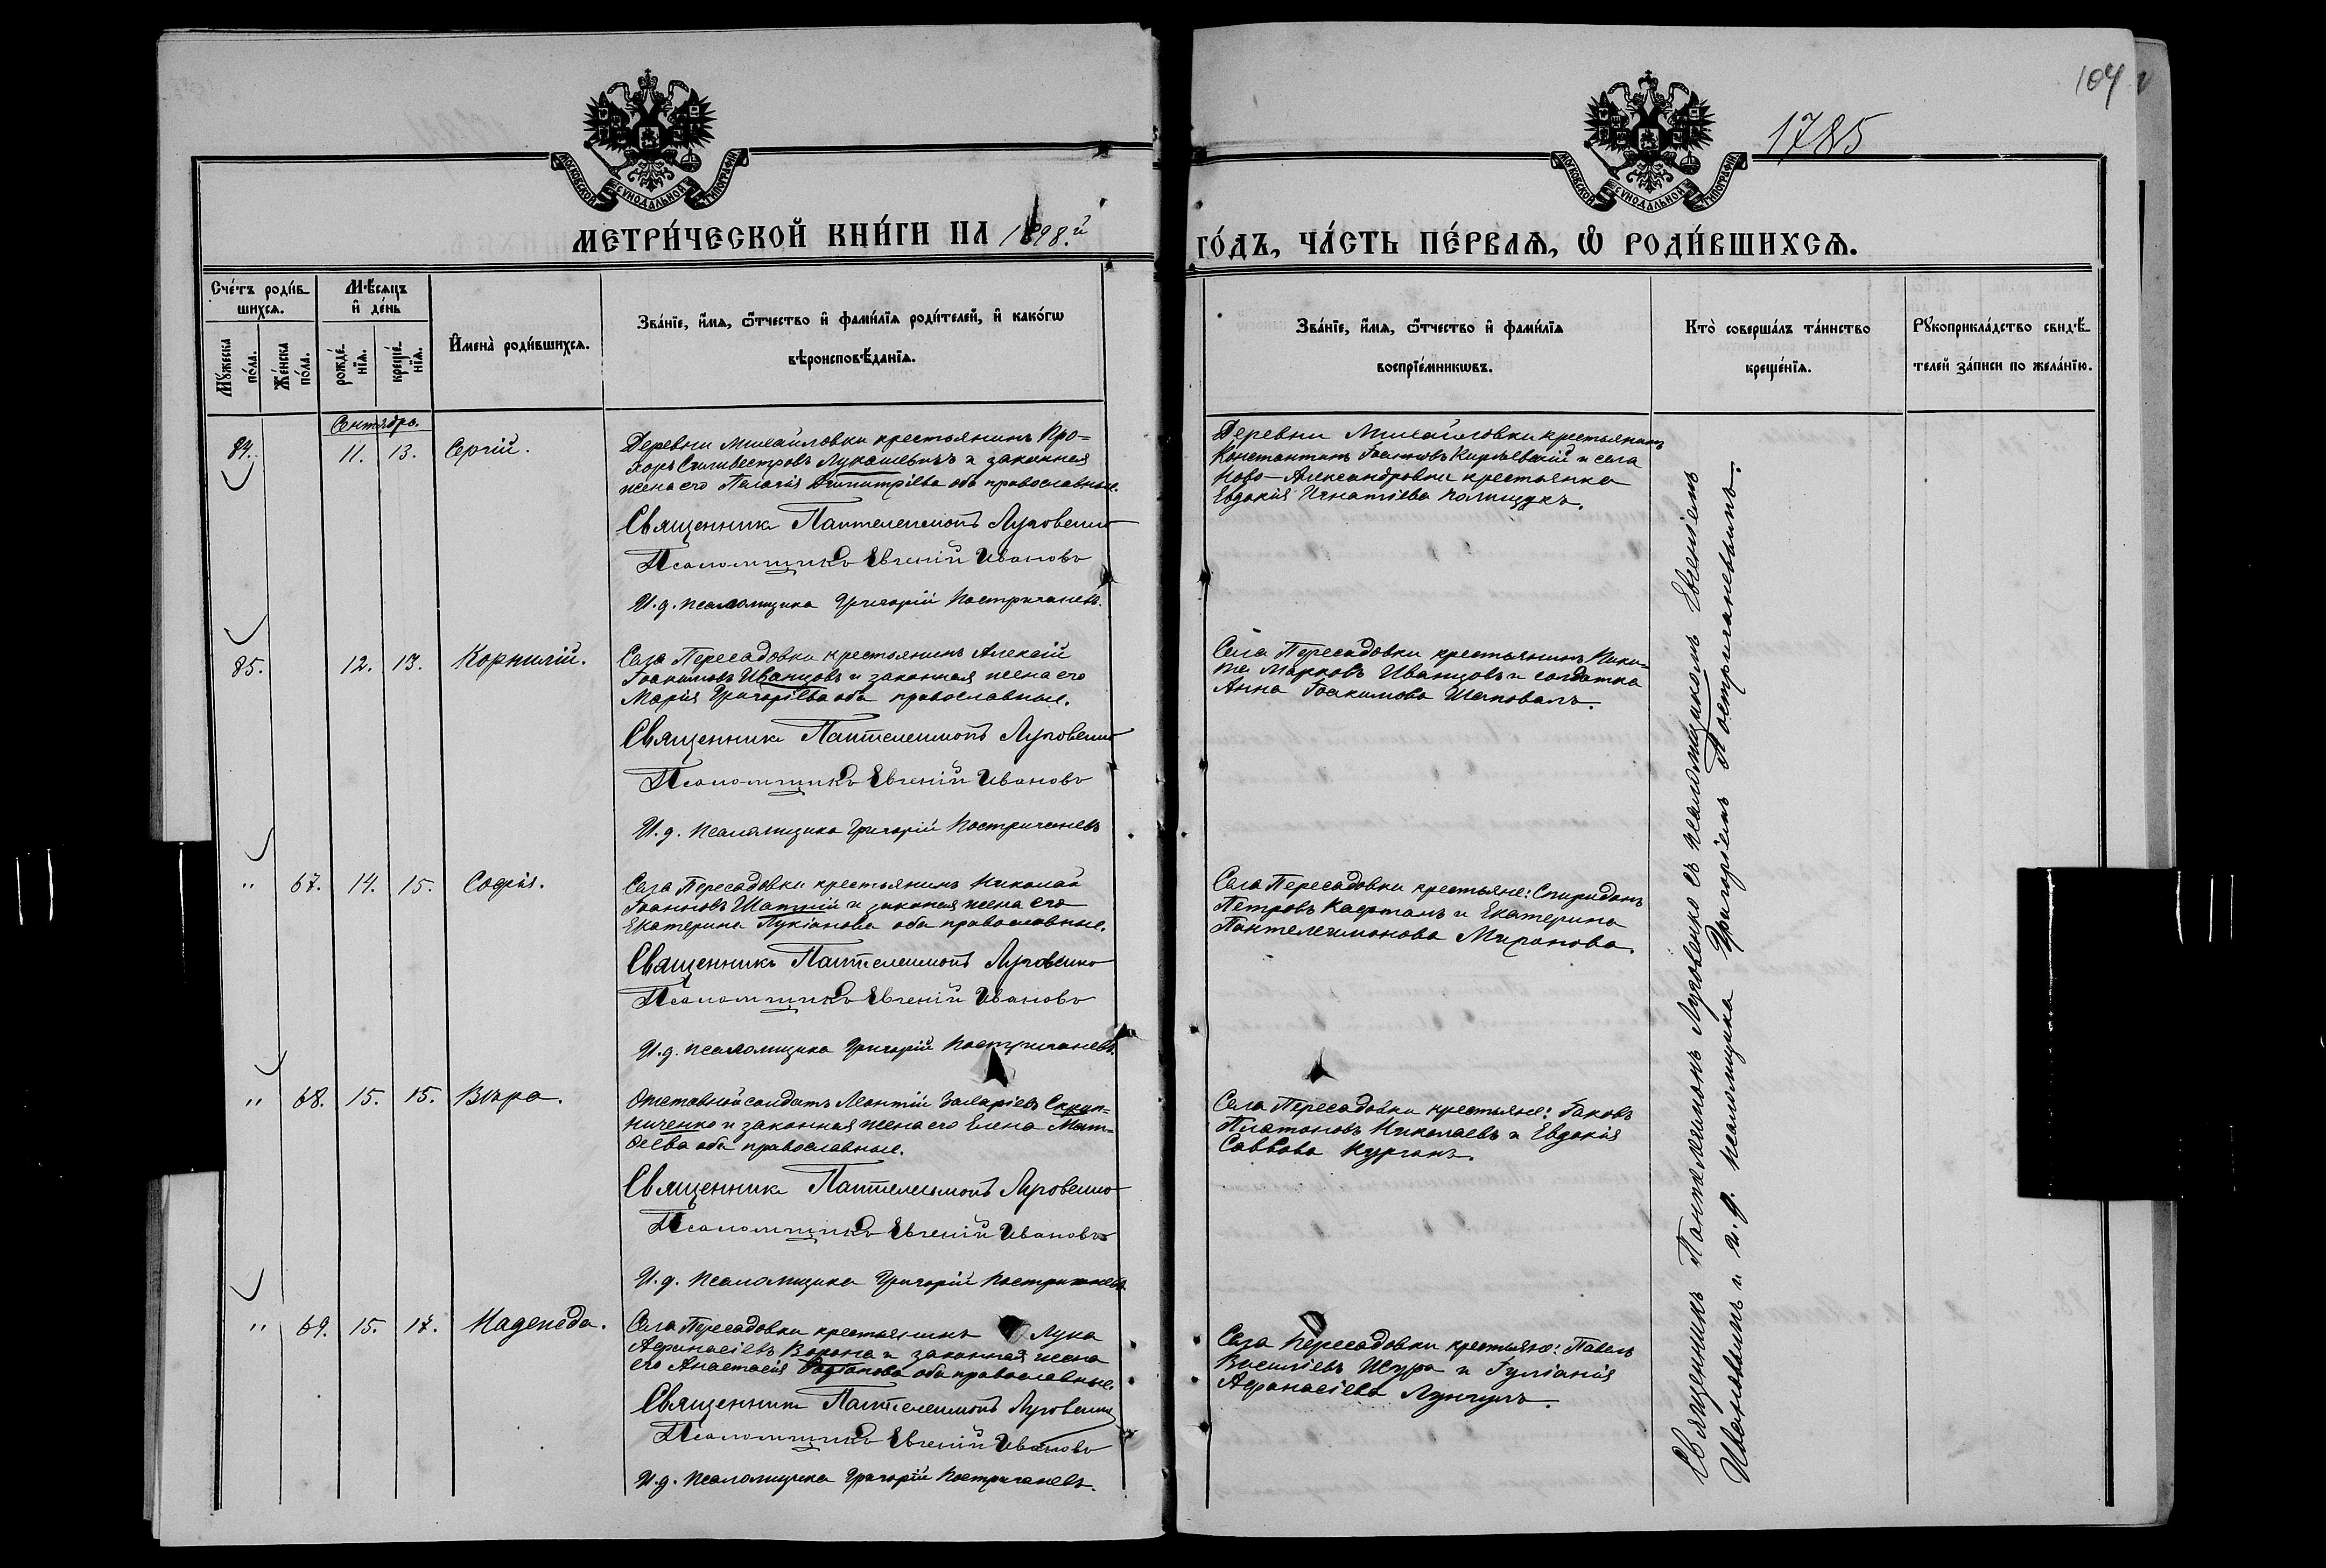 104
1785
МОСКОВСКОЙ СѴНОДАЛЬНОЙ ТИПОГРАФІИ
МОСКОВСКОЙ СѴНОДАЛЬНОЙ ТИПОГРАФІИ
МЕТРИ́ЧЕСКОЙ КНИ́ГИ НА 1898.й
ГО́ДЪ, ЧА́СТЬ ПЕ́РВАѦ, Ѽ РОДИ́ВШИХСѦ.
Сче́тъ роди́в-
шихсѧ.
Мꙋ́жеска по́ла.
Же́нска по́ла.
Мѣ́сѧцъ
и҆ де́нь
рожде́-нїѧ.
креще́-нїѧ.
И҆мена̀ роди́вшихсѧ.
Зва́нїе, и҆́мѧ, ѻ҆́тчество и҆ фами́лїѧ роди́телей, и҆ како́гѡ
вѣроисповѣ́данїѧ.
Зва́нїе, и҆́мѧ, ѻ҆́тчество и҆ фами́лїѧ
воспрїе́мникѡвъ.
Кто̀ соверша́лъ та́инство
креще́нїѧ.
Рꙋкоприкла́дство свидѣ́-
телей за́писи по жела́нїю.
Сентябрь.
84. 11. 13. Сергій.
Деревни Михайловки крестьянинъ Про-
хоръ Сильвестровъ Лукашевичъ и законная
жена его Пелагія Димитріева оба православные.
Священникъ Пантелеимонъ Луговенко
Псаломщикъ Евгеній Ивановъ
И.д. псаломщика Григорій Постригачевъ.
Деревни Михайловки крестьянинъ
Константинъ Іоанновъ Кирѣевскій и села
Ново-Александровки крестьянка
Евдокія Игнатіева Полищукъ.
85. 12. 13. Корнилій.
Села Пересадовки крестьянинъ Алексій
Іоакимовъ Иванцовъ и законная жена его
Марія Григоріева оба православные.
Священникъ Пантелеимонъ Луговенко
Псаломщикъ Евгеній Ивановъ
И.д. псаломщика Григорій Постригачевъ
Села Пересадовки крестьянинъ Ники-
та Марковъ Иванцовъ и солдатка
Анна Іоакимова Шаповалъ.
" 67. 14. 15. Софія.
Села Пересадовки крестьянинъ Николай
Іоанновъ Шатній и законная жена его
Екатерина Лукіанова оба православные.
Священникъ Пантелеимонъ Луговенко
Псаломщикъ Евгеній Ивановъ
И.д. псаломщика Григорій Постригачевъ.
Села Пересадовки крестьяне: Спиридонъ
Петровъ Кафтанъ и Екатерина
Пантелеимонова Миронова.
" 68. 15. 15. Вѣра.
Отставной солдатъ Леонтій Иларіевъ Скрип-
ниченко и законная жена его Елена Мат-
ѳеева оба православные.
Священникъ Пантелеимонъ Луговенко
Псаломщикъ Евгеній Ивановъ
И.д. псаломщика Григорій Постригачевъ.
Села Пересадовки крестьяне: Іаковъ
Платоновъ Николаевъ и Евдокія
Саввова Курганъ.
" 69. 15. 17. Надежда.
Села Пересадовки крестьянинъ Лука
Афанасіевъ Ворона и законная жена
его Анастасія оба православные.
Священникъ Пантелеимонъ Луговенко
Псаломщикъ Евгеній Ивановъ
И.д. псаломщика Григорій Постригачевъ.
Села Пересадовки крестьяне: Павелъ
Василіевъ Щура и Іуліанія
Афанасіева Лунгулъ.
Священникъ Пантелеимонъ Луговенко съ псаломщикомъ Евгеніемъ
Ивановымъ и и.д. псаломщика Григоріемъ Постригачевымъ.